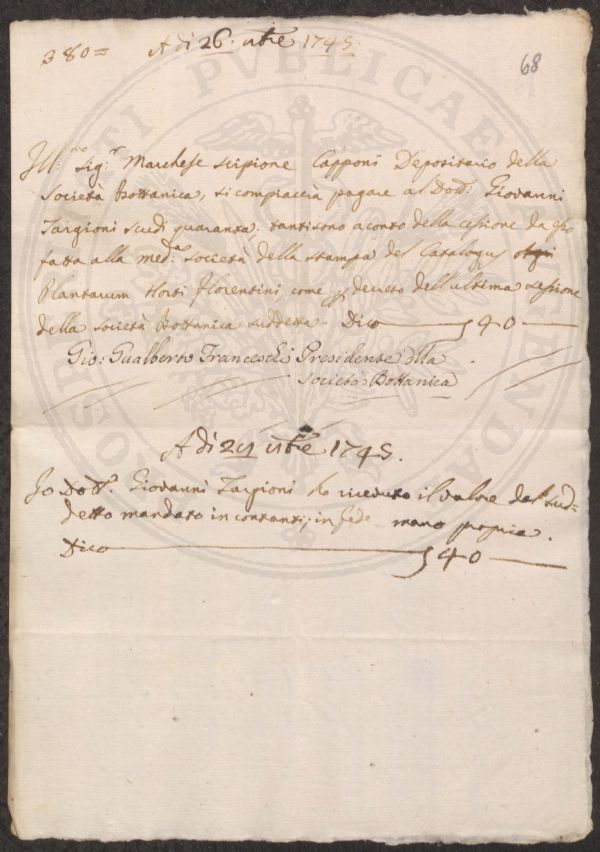 380=
A dì 26. xbre 1745.
68
Ill:mo Sig:r Marchese Scipione Capponi Depositario della
Società Bottanica, si compiacerà pagare al Dott: Giovanni
Targioni Scudi quaranta. tanti sono a conto della cessione da esso
fatta alla med:a Società della stampa del Catalogus
Plantarum Horti Florentini come p decreto dell'ultima sessione
della Società Bottanica suddetta. Dico 40
Gio: Gualberto Franceschi Presidente della
Società Bottanica
A dì 29 xbre 1745.
Io Dott. Giovanni Targioni ho ricevuto il valore del sud=
detto mandato in contanti; in fede mano propria.
Dico 40